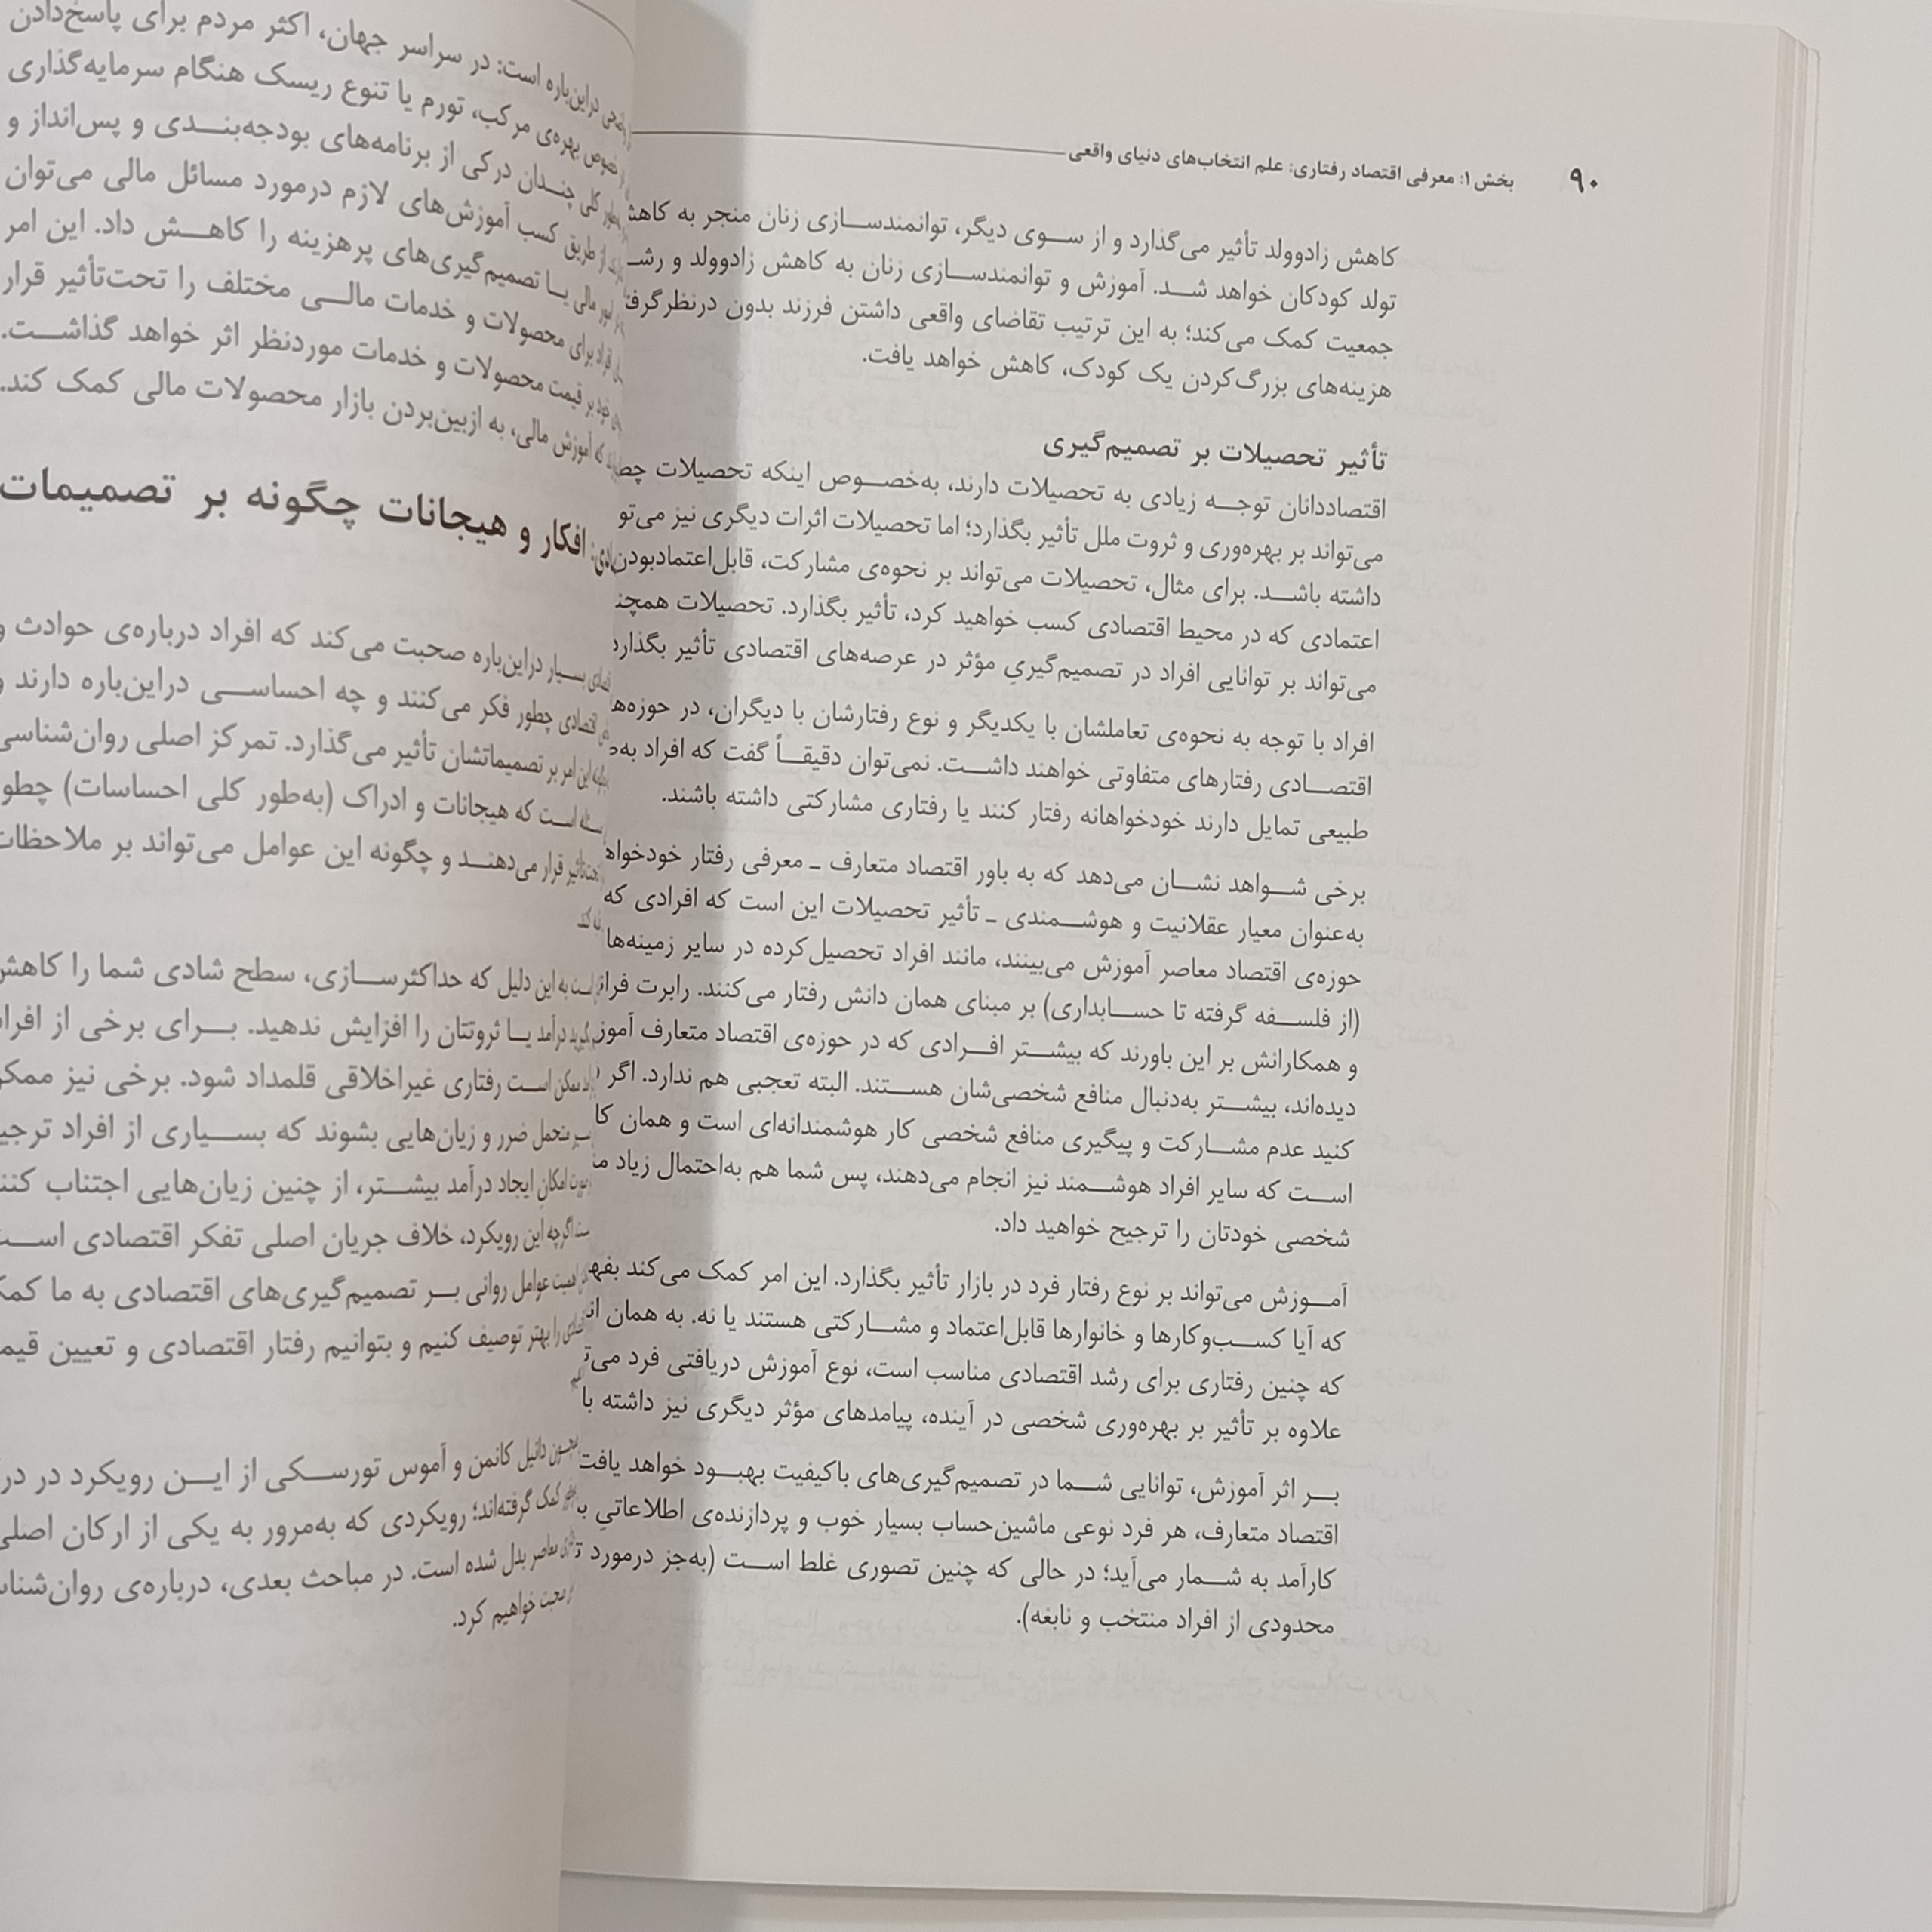 ۹۰
بخش ۱: معرفی اقتصاد رفتاری: علم انتخاب‌های دنیای واقعی
کاهش زادوولد تأثیر می‌گذارد و از سوی دیگر، توانمندسازی زنان منجر به
تولد کودکان خواهد شد. آموزش و توانمندسازی زنان به کاهش زادوولد و
جمعیت کمک می‌کند؛ به این ترتیب تقاضای واقعی داشتن فرزند بدون
هزینه‌های بزرگ‌کردن یک کودک، کاهش خواهد یافت.
تأثیر تحصیلات بر تصمیم‌گیری
اقتصاددانان توجه زیادی به تحصیلات دارند، به‌خصوص اینکه تحصیلات
می‌تواند بر بهره‌وری و ثروت ملل تأثیر بگذارد؛ اما تحصیلات اثرات دیگری نیز
داشته باشد. برای مثال، تحصیلات می‌تواند بر نحوه‌ی مشارکت، قابل‌اعتمادبودن
اعتمادی که در محیط اقتصادی کسب خواهید کرد، تأثیر بگذارد. تحصیلات
می‌تواند بر توانایی افراد در تصمیم‌گیریِ مؤثر در عرصه‌های اقتصادی تأثیر بگذارد
افراد با توجه به نحوه‌ی تعاملشان با یکدیگر و نوع رفتارشان با دیگران، در
اقتصادی رفتارهای متفاوتی خواهند داشت. نمی‌توان دقیقاً گفت که افراد
طبیعی تمایل دارند خودخواهانه رفتار کنند یا رفتاری مشارکتی داشته باشند.
برخی شواهد نشان می‌دهد که به باور اقتصاد متعارف ـ معرفی رفتار
به‌عنوان معیار عقلانیت و هوشمندی ـ تأثیر تحصیلات این است که افرادی که
حوزه‌ی اقتصاد معاصر آموزش می‌بینند، مانند افراد تحصیل‌کرده در سایر زمینه‌ها
(از فلسفه گرفته تا حسابداری) بر مبنای همان دانش رفتار می‌کنند. رابرت
و همکارانش بر این باورند که بیشتر افرادی که در حوزه‌ی اقتصاد متعارف
دیده‌اند، بیشتر به‌دنبال منافع شخصی‌شان هستند. البته تعجبی هم ندارد. اگر
کنید عدم مشارکت و پیگیری منافع شخصی کار هوشمندانه‌ای است و همان
است که سایر افراد هوشمند نیز انجام می‌دهند، پس شما هم به‌احتمال زیاد
شخصی خودتان را ترجیح خواهید داد.
آموزش می‌تواند بر نوع رفتار فرد در بازار تأثیر بگذارد. این امر کمک می‌کند
که آیا کسب‌وکارها و خانوارها قابل‌اعتماد و مشارکتی هستند یا نه. به همان
که چنین رفتاری برای رشد اقتصادی مناسب است، نوع آموزش دریافتی فرد
علاوه بر تأثیر بر بهره‌وری شخصی در آینده، پیامدهای مؤثر دیگری نیز داشته
بر اثر آموزش، توانایی شما در تصمیم‌گیری‌های باکیفیت بهبود خواهد یافت
اقتصاد متعارف، هر فرد نوعی ماشین‌حساب بسیار خوب و پردازنده‌ی اطلاعاتیِ
کارآمد به شمار می‌آید؛ در حالی که چنین تصوری غلط است (به‌جز درمورد
محدودی از افراد منتخب و نابغه).
دراین‌باره است: در سراسر جهان، اکثر مردم برای پاسخ‌دادن
بهره‌ی مرکب، تورم یا تنوع ریسک هنگام سرمایه‌گذاری
کلی چندان درکی از برنامه‌های بودجه‌بندی و پس‌انداز و
از طریق کسب آموزش‌های لازم درمورد مسائل مالی می‌توان
مالی یا تصمیم‌گیری‌های پرهزینه را کاهش داد. این امر
افراد برای محصولات و خدمات مالی مختلف را تحت‌تأثیر قرار
بر قیمت محصولات و خدمات موردنظر اثر خواهد گذاشت.
که آموزش مالی، به ازبین‌بردن بازار محصولات مالی کمک کند.
افکار و هیجانات چگونه بر تصمیمات
بسیار دراین‌باره صحبت می‌کند که افراد درباره‌ی حوادث و
اقتصادی چطور فکر می‌کنند و چه احساسی دراین‌باره دارند و
این امر بر تصمیماتشان تأثیر می‌گذارد. تمرکز اصلی روان‌شناسی
است که هیجانات و ادراک (به‌طور کلی احساسات) چطور
قرار می‌دهند و چگونه این عوامل می‌تواند بر ملاحظات
به این دلیل که حداکثرسازی، سطح شادی شما را کاهش
درآمد یا ثروتتان را افزایش ندهید. برای برخی از افراد
ممکن است رفتاری غیراخلاقی قلمداد شود. برخی نیز ممکن
متحمل ضرر و زیان‌هایی بشوند که بسیاری از افراد
امکان ایجاد درآمد بیشتر، از چنین زیان‌هایی اجتناب
اگرچه این رویکرد، خلاف جریان اصلی تفکر اقتصادی است
اهمیت عوامل روانی بر تصمیم‌گیری‌های اقتصادی به ما کمک
را بهتر توصیف کنیم و بتوانیم رفتار اقتصادی و تعیین
دانیل کانمن و آموس تورسکی از این رویکرد در
کمک گرفته‌اند؛ رویکردی که به‌مرور به یکی از ارکان اصلی
معاصر بدل شده است. در مباحث بعدی، درباره‌ی
صحبت خواهیم کرد.